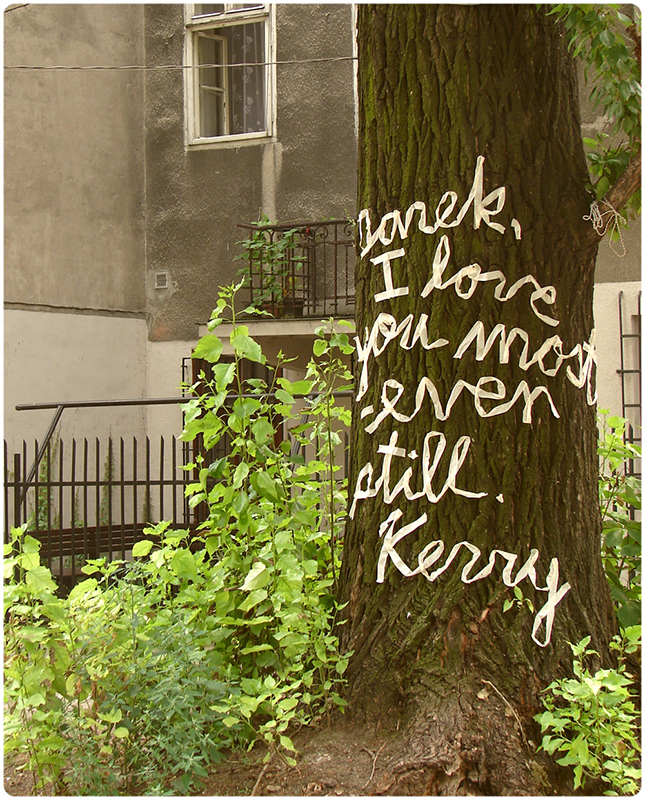 Darek,
I love
you most
-even
still.
Kerry